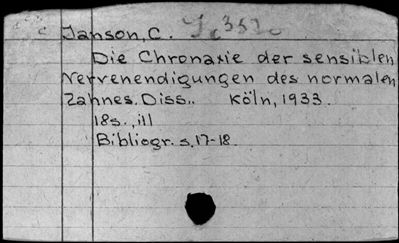 Janson, C.
Die Chronaxie der sensiblen
Nervenendigungen des normalen
Zahnes. Diss.. Köln, 1933.
18s., ill
Bibliogr. s. 17-18.